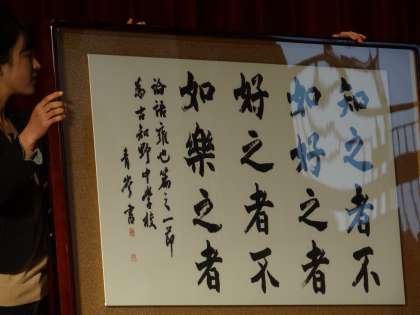 知之者不
如好之者
好之者不
如樂之者
論語雍也篇之一節
為古知野中学校
青岑書